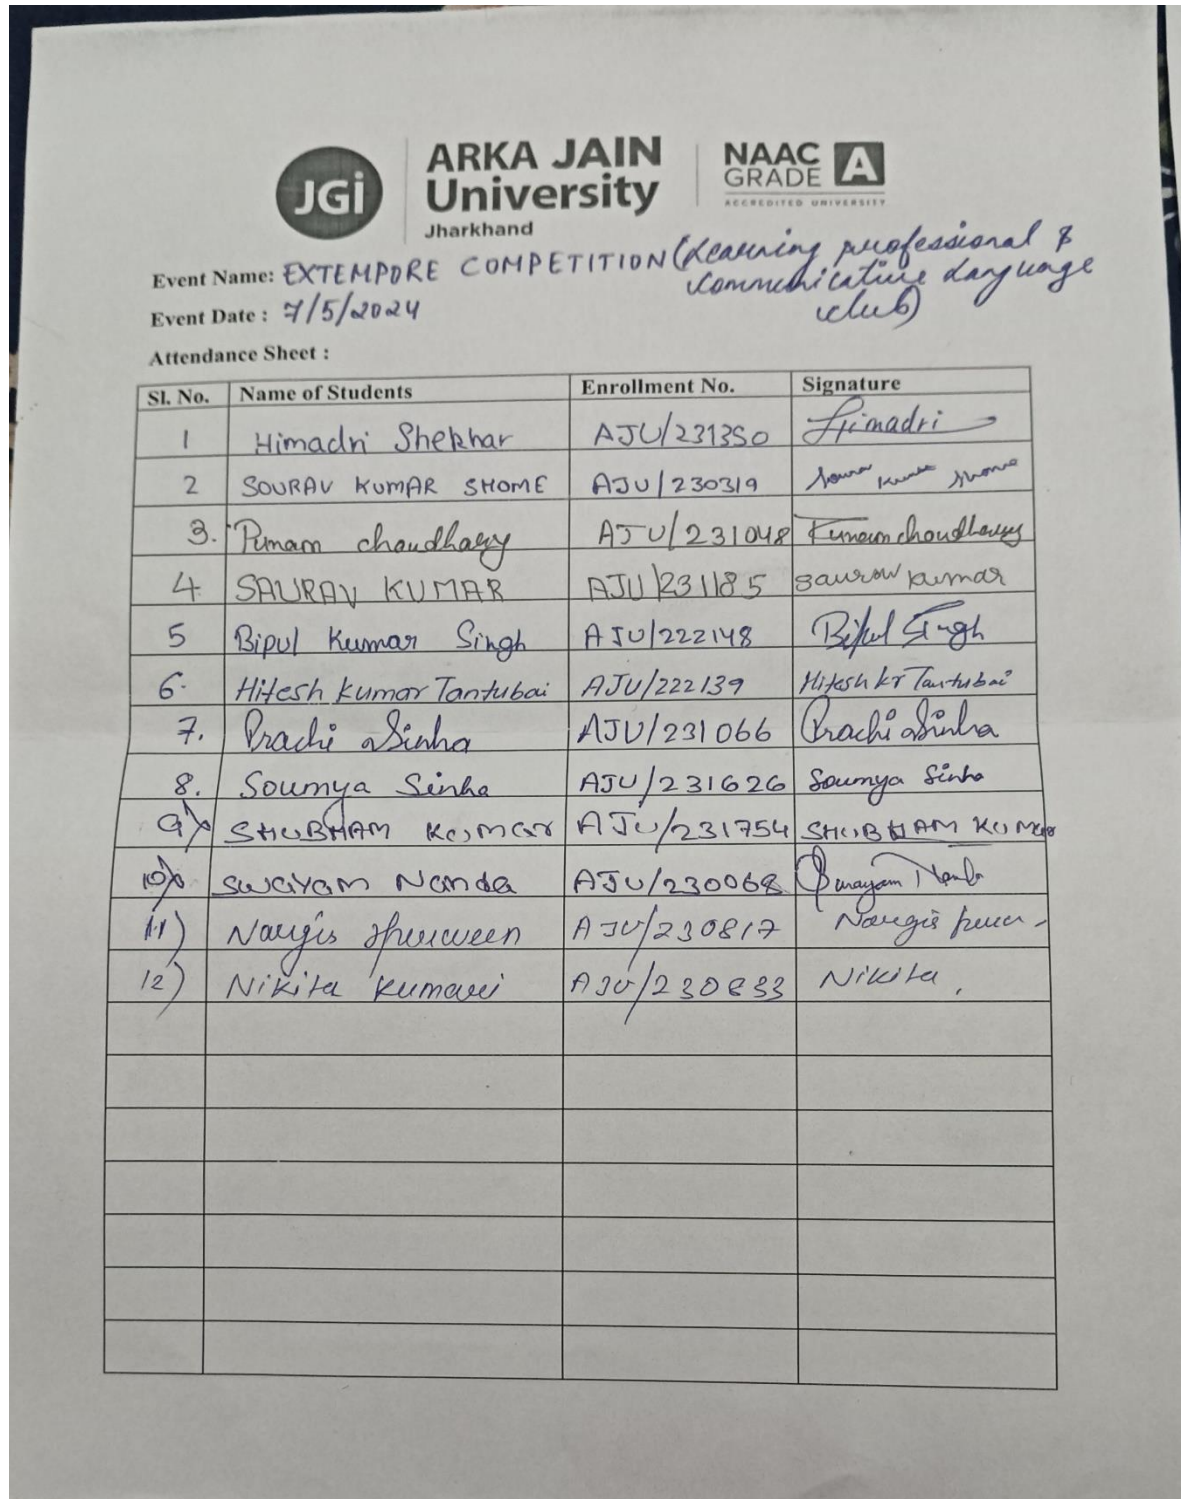 JGi ARKA JAIN University Jharkhand NAAC GRADE A ACCREDITED UNIVERSITY
Event Name: EXTEMPORE COMPETITION (Learning professional &
communicative language
club)
Event Date : 7/5/2024
Attendance Sheet :
Sl. No. Name of Students Enrollment No. Signature
1 Himadri Shekhar AJU/231350 Himadri
2 SOURAV KUMAR SHOME AJU/230319 Sourav Kumar Shome
3. Punam chaudhary AJU/231048 Punam choudhary
4. SAURAV KUMAR AJU/231185 saurav kumar
5 Bipul Kumar Singh AJU/222148 Bipul Singh
6. Hitesh Kumar Tantubai AJU/222139 Hitesh kr Tantubai
7. Prachi Sinha AJU/231066 Prachi Sinha
8. Soumya Sinha AJU/231626 Soumya Sinha
9) SHUBHAM KUMAR AJU/231754 SHUBHAM KUMAR
10) Swayam Nanda AJU/230068 Swayam Nanda
11) Nargis Perween AJU/230817 Nargis
12) Nikita Kumari AJU/230833 Nikita